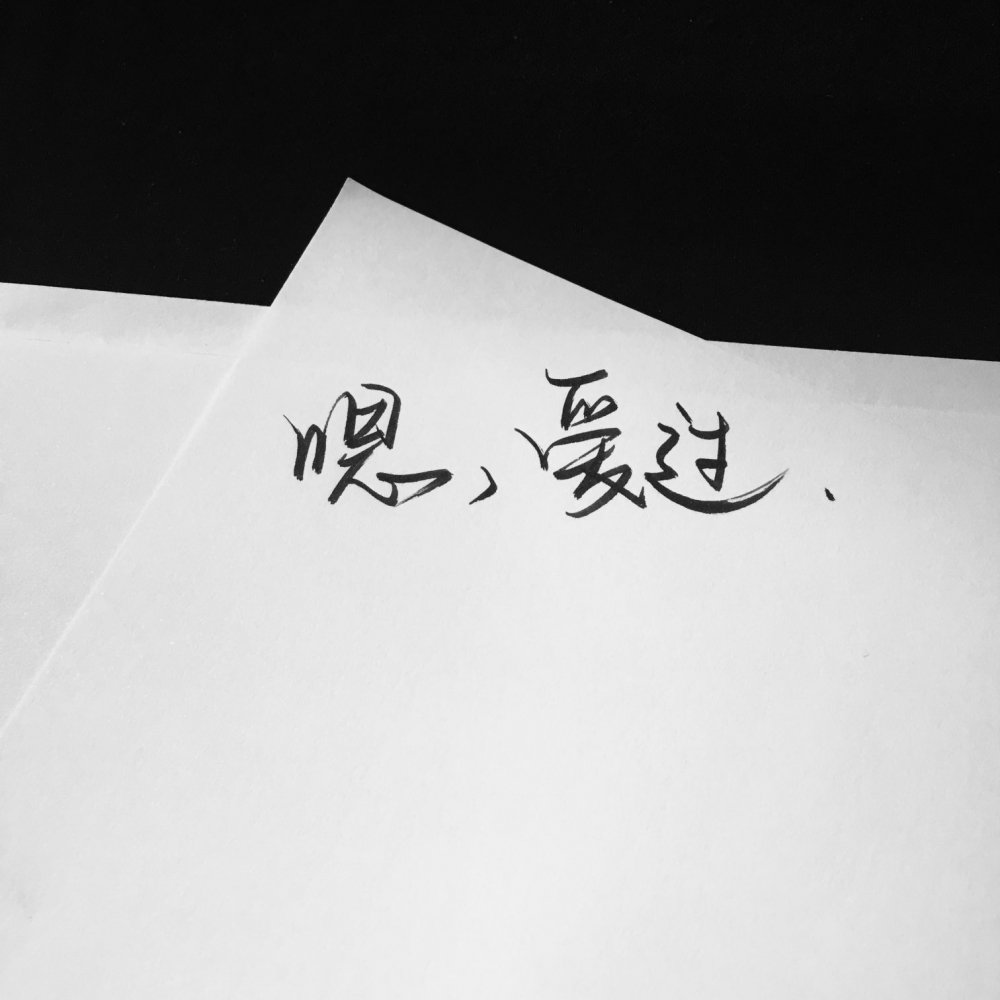 嗯，爱过.